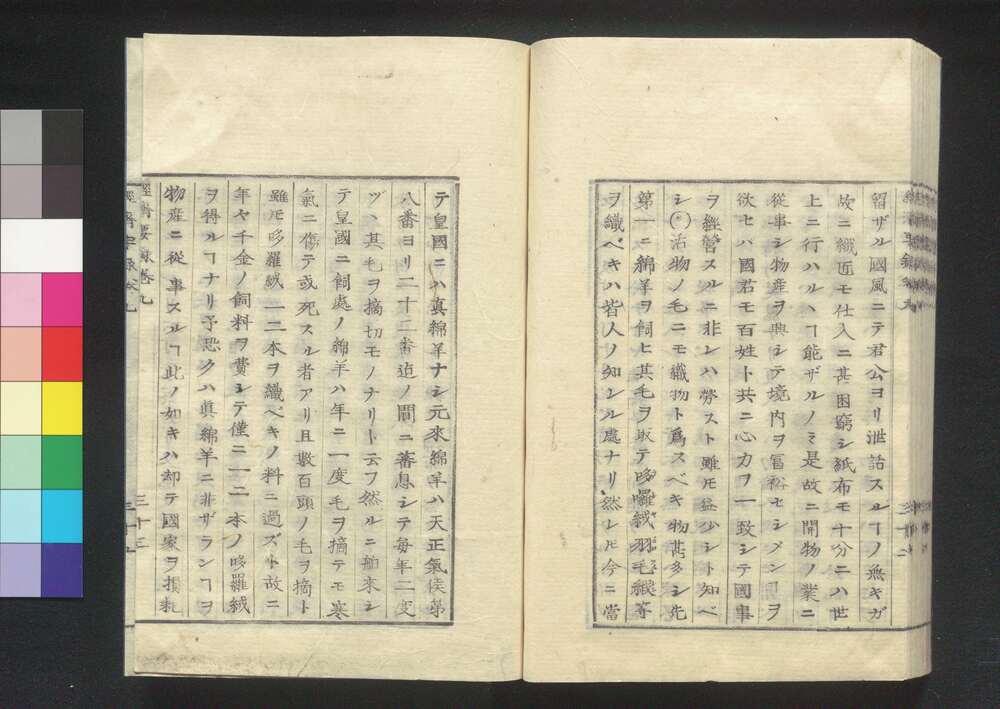 留ザル國風ニテ君公ヨリ泄話スルヿノ無キガ
故ニ織匠モ仕入ニ甚困窮シ紙布モ十分ニハ世
上ニ行ハルヽヿ能ザルノミ是故ニ開物ノ業ニ
從事シ物産ヲ興シテ境内ヲ冨裕セシメンヿヲ
欲セハ國君モ百姓ト共ニ心力ヲ一致シテ國事
ヲ經營スルニ非レハ勞スト雖モ益少シト知ベ
シ(〇)活物ノ毛ニモ織物ト爲スベキ物甚多シ先
第一ニ綿羊ヲ飼ヒ其毛ヲ取テ哆囉絨羽毛緞等
ヲ織ベキハ皆人ノ知レル處ナリ然レ𪜈今ニ當
テ皇國ニハ真綿羊ナシ元來綿羊ハ天正氣候第
八番ヨリ二十二番迠ノ間ニ蕃息シテ毎年二度
ヅヽ其毛ヲ摘切モノナリト云フ然ルニ舶來シ
テ皇國ニ飼處ノ綿羊ハ年ニ一度毛ヲ摘テモ寒
氣ニ傷テ或死スル者アリ且數百頭ノ毛ヲ摘ト
雖𪜈哆羅絨一二本ヲ織ベキノ料ニ過ズト故ニ
年々千金ノ飼料ヲ費シテ僅ニ一二本ノ哆羅絨
ヲ得ルヿナリ予恐クハ真綿羊ニ非ザランヿヲ
物産ニ從事スルヿ此ノ如キハ却テ國家ヲ損耗
經濟要録卷九
三十三